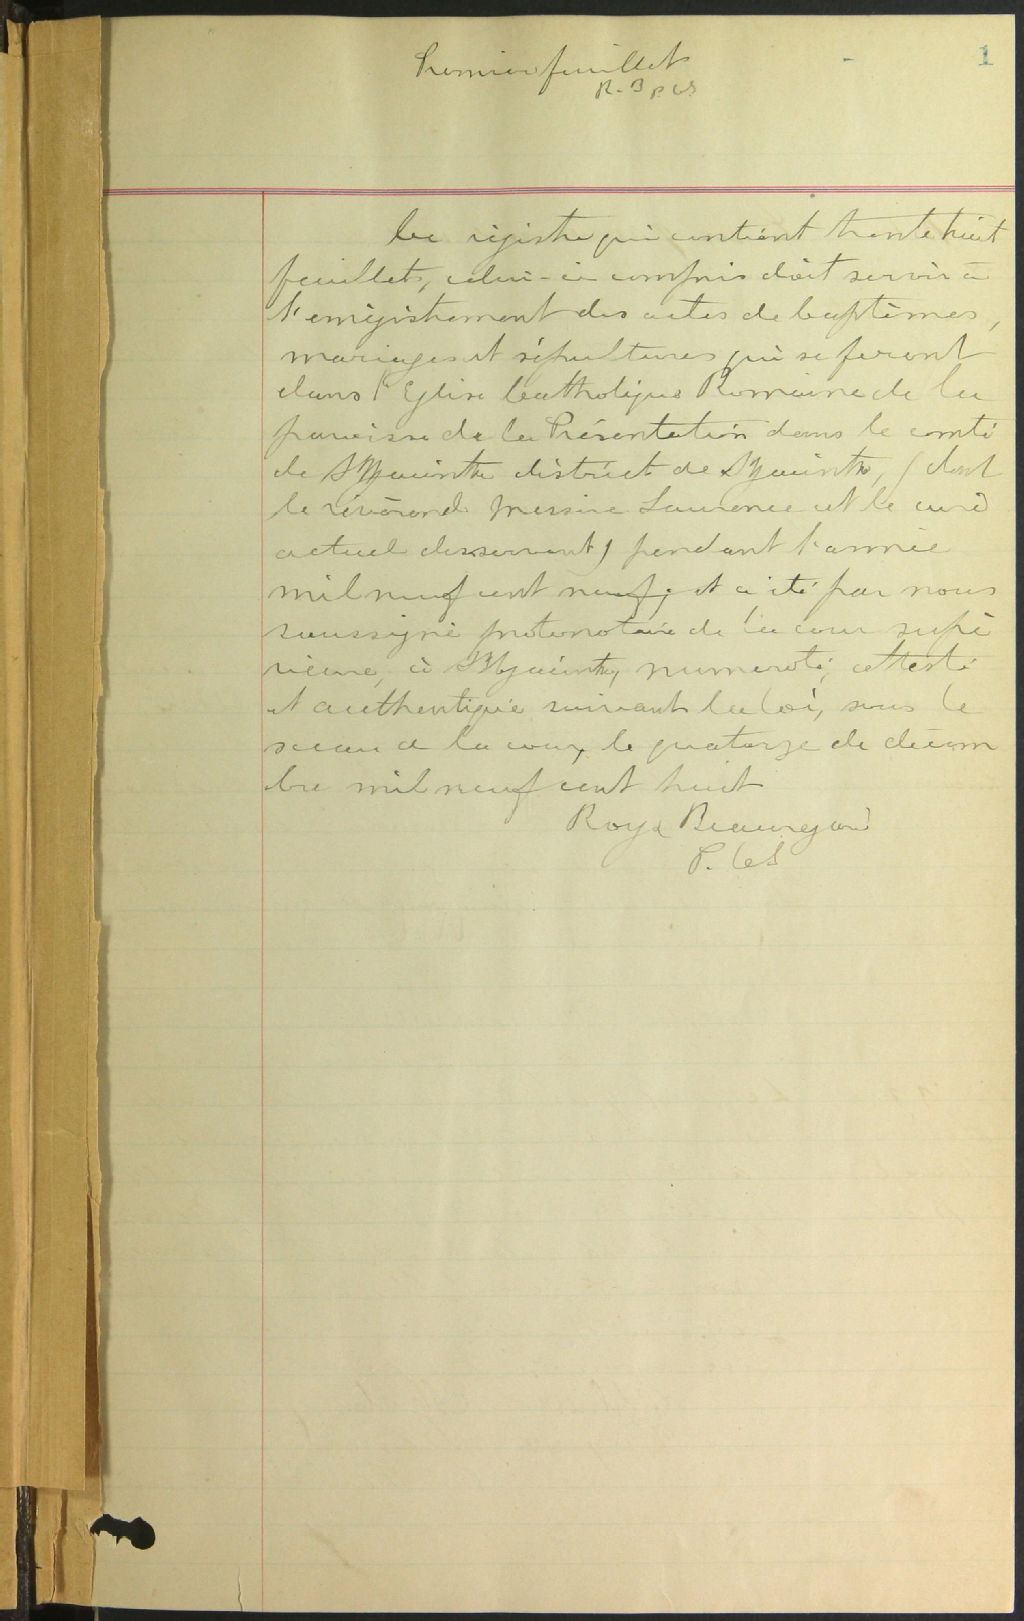 Premier feuillet
1
R. B P CS
Ce régistre qui contient trente huit
feuillets, celui-ci compris doit servir à
l'enrégistrement des actes de baptêmes,
mariages et sépultures qui se feront
dans l'Eglise Catholique Romaine de la
paroisse de la Présentation dans le comté
de St Hyacinthe district de St Hyacinthe, (dont
le révérend Messire Laurence est le curé
actuel desservant) pendant l'année
mil neuf cent neuf, et a été par nous
soussigné protonotaire de la cour supé
rieure, à St Hyacinthe, numeroté, attesté
et authentiqué suivant la loi, sous le
sceau de la cour, le quatorze de décem
bre mil neuf cent huit
Roy & Beauregard
P. C S